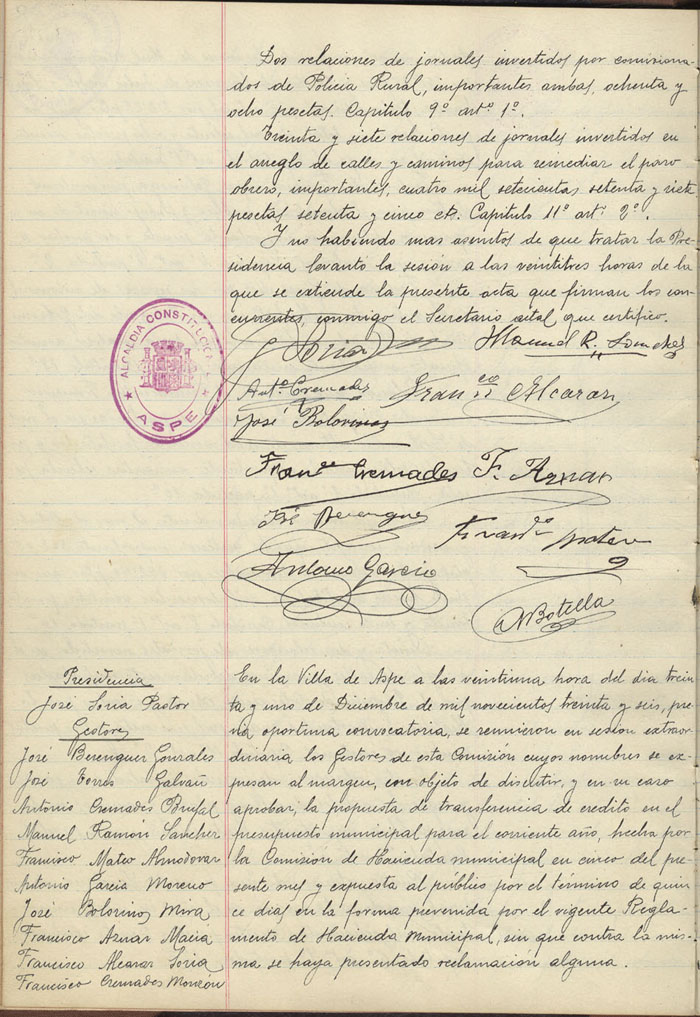 Dos relaciones de jornales invertidos por comisiona-
dos de Policia Rural, importantes ambas, ochenta y
ocho pesetas. Capitulo 9º artº 1º.
Treinta y siete relaciones de jornales invertidos en
el arreglo de calles y caminos para remediar el paro
obrero, importantes, cuatro mil setecientas setenta y siete
pesetas setenta y cinco cts. Capitulo 11º artº 2º.
Y no habiendo mas asuntos de que tratar la Pre-
sidencia levantó la sesión a las veintitres horas de la
que se extiende la presente acta que firman los con-
currentes, conmigo el Secretario actal que certifico.
ALCALDIA CONSTITUCIONAL
ASPE
J Soria
Manuel R. Sanchez
Antº Cremades
Franco Alcaraz
José Bolorinos
Franco Cremades
F. Aznar
José Berenguer
Francº Mateo
Antonio Garcia
A Botella
Presidencia
José Soria Pastor
Gestores
José Berenguer Gonzales
José Torres Galvañ
Antonio Cremades Brufal
Manuel Ramón Sanchez
Francisco Mateo Almodovar
Antonio Garcia Moreno
José Bolorinos Mira
Francisco Aznar Macia
Francisco Alcaraz Soria
Francisco Cremades Monzón
En la Villa de Aspe a las veintiuna hora del dia trein-
ta y uno de Diciembre de mil novecientos treinta y seis, pre-
via oportuna convocatoria, se reunieron en sesion extraor-
diniaria los Gestores de esta Comisión cuyos nombres se ex-
presan al margen, con objeto de discutir, y en su caso
aprobar, la propuesta de transferencia de credito en el
presupuesto municipal para el corriente año, hecha por
la Comisión de Hacienda municipal en cinco del pre-
sente mes y expuesta al público por el término de quin-
ce dias en la forma prevenida por el vigente Regla-
mento de Hacienda Municipal, sin que contra la mis-
ma se haya presentado reclamación alguna.